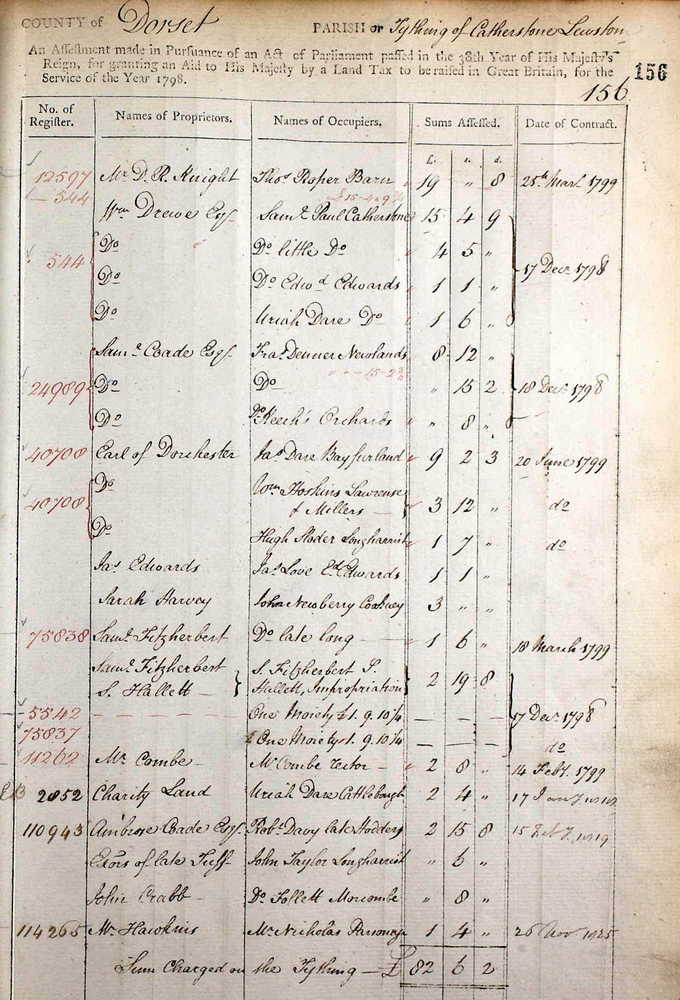 COUNTY of Dorset PARISH or Tything of Catherstone Lewston
An Assessment made in Pursuance of an Act of Parliament passed in the 38th Year of His Majesty's
Reign, for granting an Aid to His Majesty by a Land Tax to be raised in Great Britain, for the
Service of the Year 1798.
156
156
No. of Register. Names of Proprietors. Names of Occupiers. Sums Assessed. Date of Contract.
£. s. d.
12597 Mr D. R. Knight Thos Roper Barn 19 " 8 25th March 1799
544 Wm Drewe Esqr. Saml Paul Catherstone 15 4 9
544 Do Do little Do 4 5 " 17 Decr 1798
Do Do Edwd Edwards 1 1 "
Do Uriah Dare Do 1 6 "
Saml Coade Esqr. Fras Denner Newlands 8 12 "
24989 Do Do " 15 2 18 Decr 1798
Do Do Keech's Orchards " 8 "
40708 Earl of Dorchester Jas Dare Bayfurland 9 2 3 20 June 1799
40708 Do Wm Hoskins Lawrense
& Millers 3 12 " do
Do Hugh Hoder Longharrist 1 7 " do
Jas Edwards Jas Love Ed Edwards 1 1 "
Sarah Harvey John Newberry 3 " "
75838 Saml Fitzherbert Do late long 1 6 " 18 March 1799
Saml Fitzherbert S. Fitzherbert
S. Hallett Hallett, Impropriation 2 19 8
5542 One Moiety £1. 9. 10¼ 17 Decr 1798
75837 One Moiety £1. 9. 10¼ do
11262 Mr Combe Mr Combe Rector 2 8 " 14 Feby. 1799
2852 Charity Land Uriah Dare Cattlebough 2 4 " 17 Jany 1919
110943 Ambrose Coade Esqr. Robt Davy late Hodders 2 15 8 15 Feby 1919
Exors of late Tuff John Taylor Longharrist " 6 "
John Crabb Do Follett Morcombe " 8 "
114265 Mr Hawkins Mr Nicholas Parsonage 1 4 " 26 Nov 1925
Sum Charged on the Tything £ 82 6 2